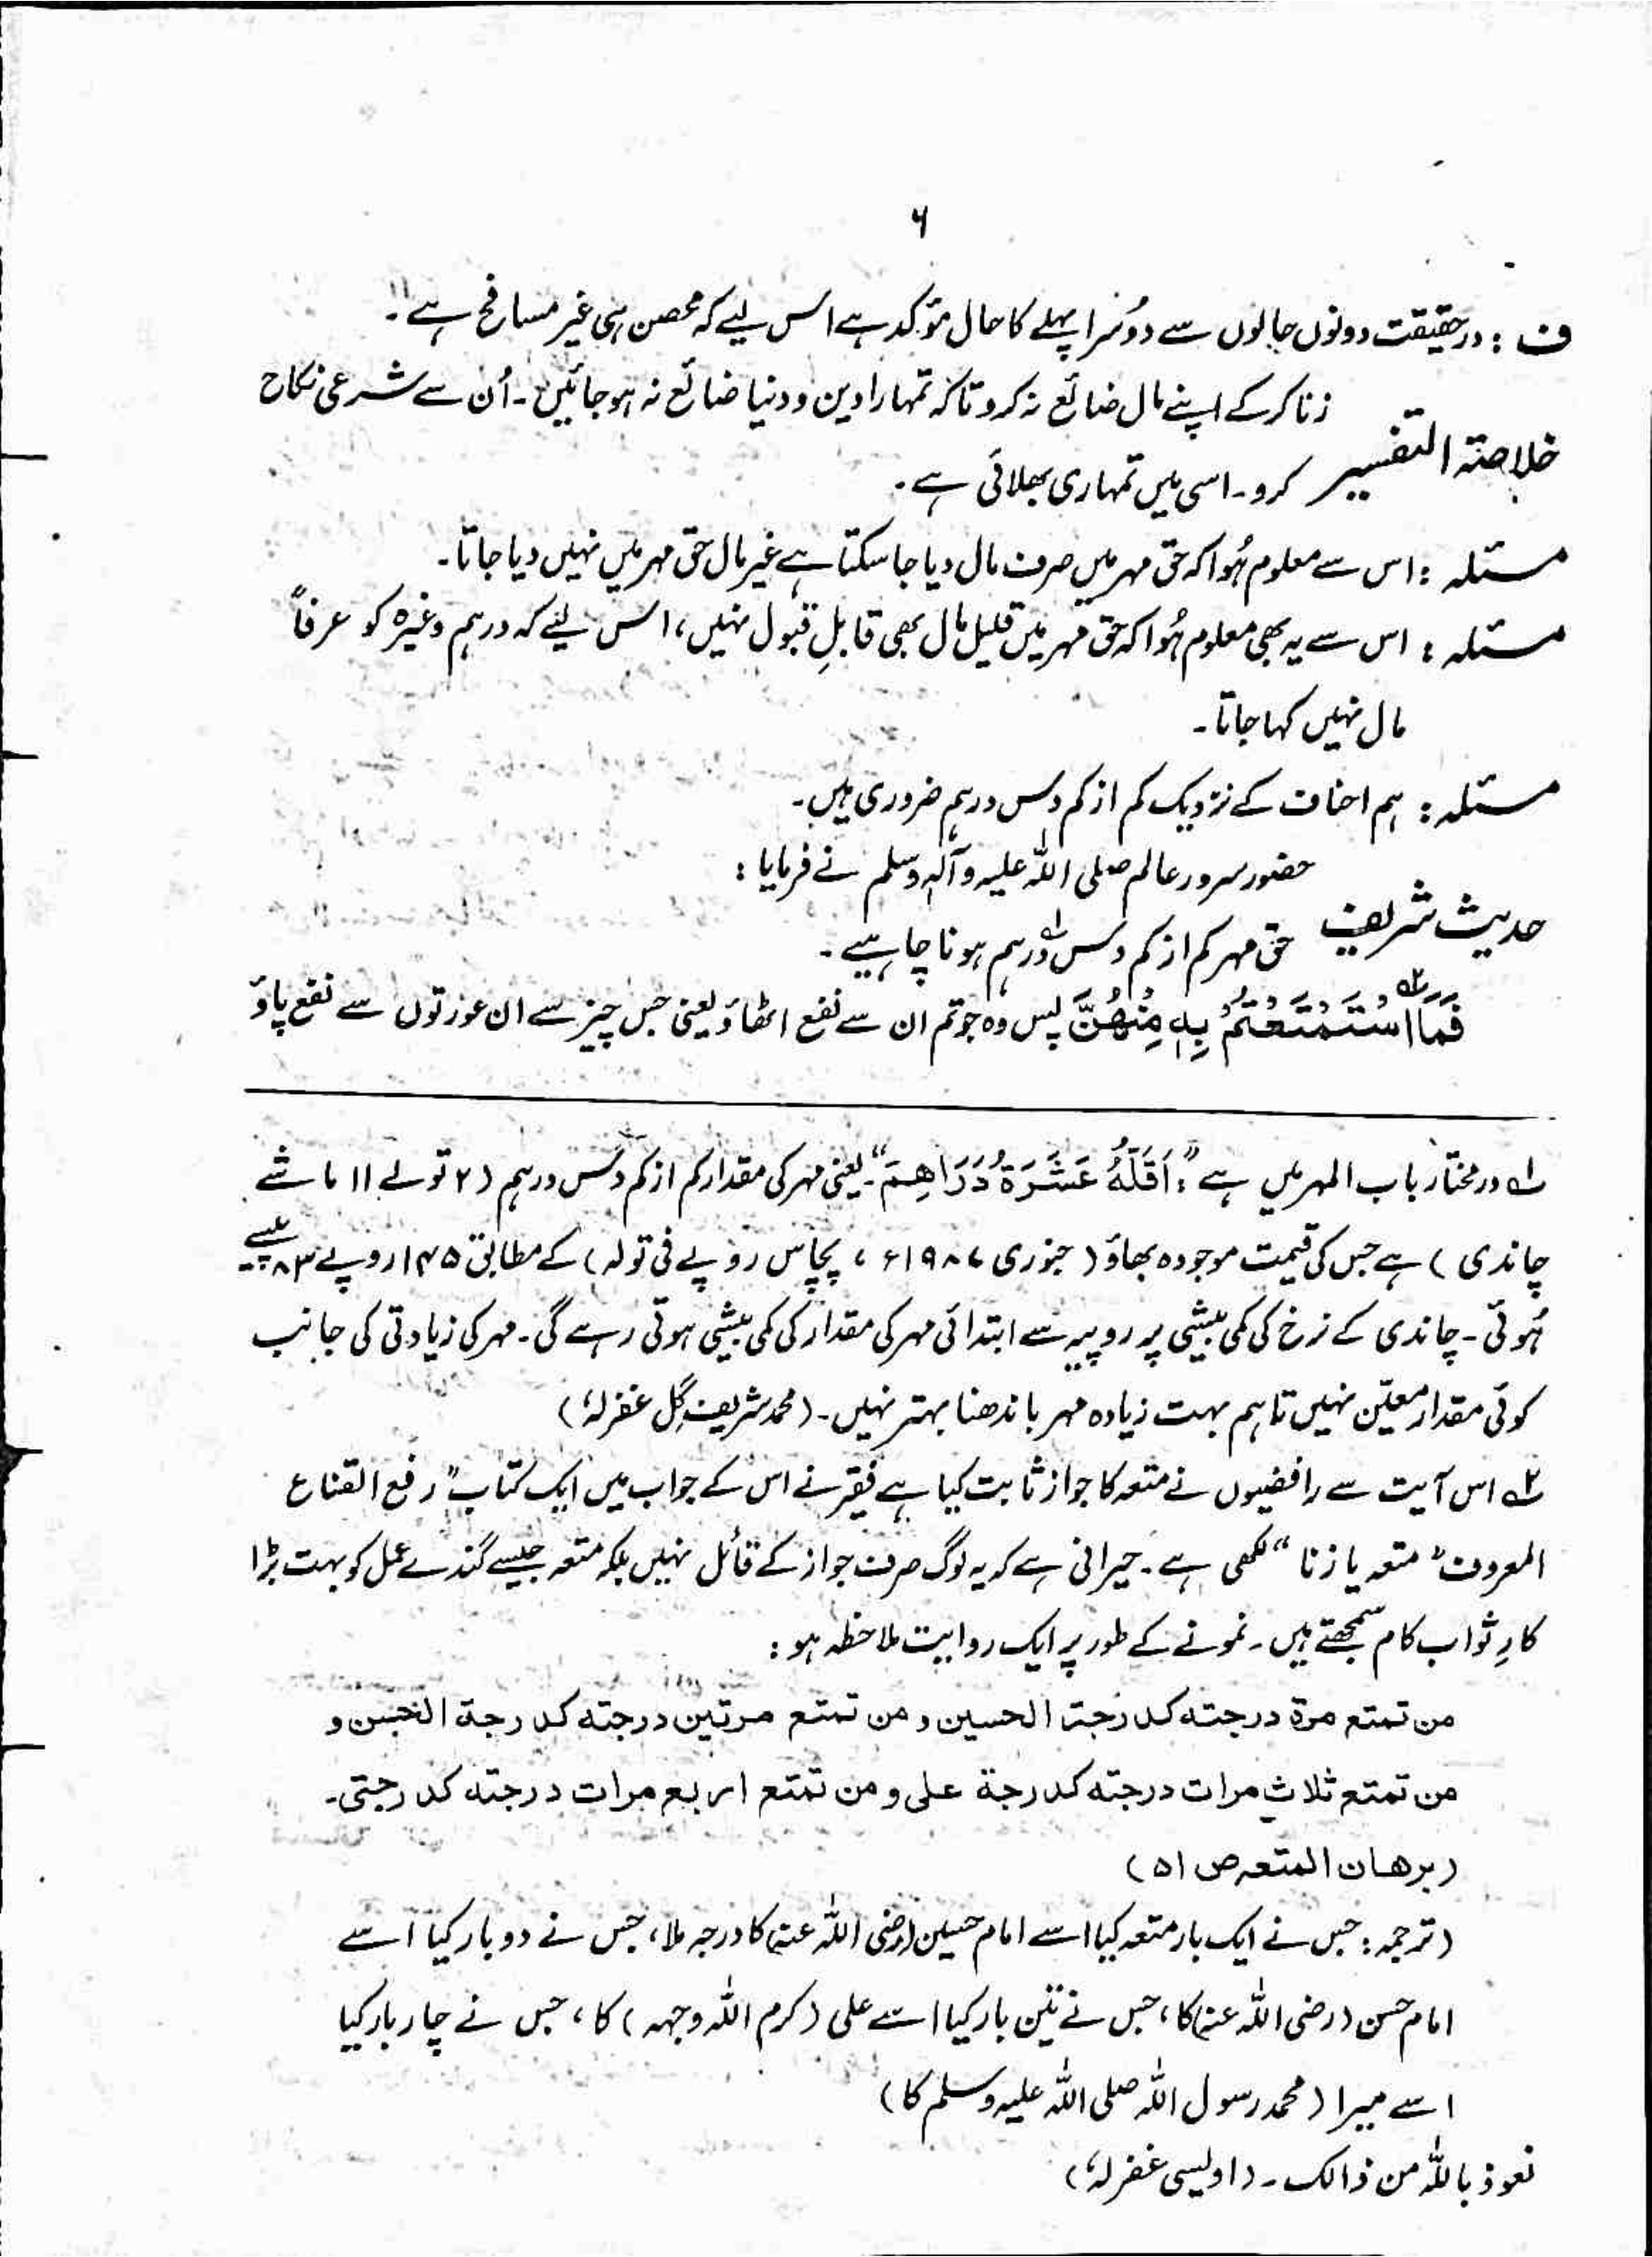 ۶
ف : درحقیقت دونوں حالوں سے دوسرا پہلے کا حال مؤکد ہے اس لیے کہ محصن ہی غیر مسافح ہے۔
زنا کر کے اپنے مال ضائع نہ کرو تاکہ تمہارا دین و دنیا ضائع نہ ہو جائیں۔ اُن سے شرعی نکاح
خلاصۃ التفسیر
کرو۔ اسی میں تمہاری بھلائی ہے۔
مسئلہ : اس سے معلوم ہُوا کہ حق مہر میں صرف مال دیا جا سکتا ہے غیر مال حق مہر میں نہیں دیا جاتا۔
مسئلہ : اس سے یہ بھی معلوم ہُوا کہ حق مہر میں قلیل مال بھی قابلِ قبول نہیں، اس لئے کہ درہم وغیرہ کو عرفاً
مال نہیں کہا جاتا۔
مسئلہ : ہم احناف کے نزدیک کم از کم دس درہم ضروری ہیں۔
حضور سرور عالم صلی اللہ علیہ وآلہ وسلم نے فرمایا :
حدیث شریف
حق مہر کم از کم دس لہ درہم ہونا چاہیے۔
فَمَا اسْتَمْتَعْتُمْ بِهٖ مِنْهُنَّ ۲ پس وہ جو تم ان سے نفع اٹھاؤ یعنی جس چیز سے ان عورتوں سے نفع پاؤ
لہ درمختار باب المہر میں ہے : "اَقَلُّهُ عَشَرَةُ دَرَاهِمَ" ۔ یعنی مہر کی مقدار کم از کم دس درہم (۲ تولے ۱۱ ماشے
چاندی) ہے جس کی قیمت موجودہ بھاؤ (جنوری ۱۹۸۷ء، پچاس روپے فی تولہ) کے مطابق ۱۴۵ روپے ۸۳ پیسے
ہُوئی۔ چاندی کے نرخ کی کمی بیشی پر روپیہ سے ابتدائی مہر کی مقدار کی کمی بیشی ہوتی رہے گی۔ مہر کی زیادتی کی جانب
کوئی مقدار معیّن نہیں تاہم بہت زیادہ مہر باندھنا بہتر نہیں۔ (محمد شریف گل غفرلہٗ)
۲ اس آیت سے رافضیوں نے متعہ کا جواز ثابت کیا ہے فقیر نے اس کے جواب میں ایک کتاب "رفع القناع
المعروف" متعہ یا زنا" لکھی ہے۔ حیرانی ہے کہ یہ لوگ صرف جواز کے قائل نہیں بلکہ متعہ جیسے گندے عمل کو بہت بڑا
کارِ ثواب کام سمجھتے ہیں۔ نمونے کے طور پر ایک روایت ملاحظہ ہو :
من تمتع مرة درجته كدرجت الحسين و من تمتع مرتين درجته كدرجة الحسن و
من تمتع ثلاث مرات درجته كدرجة على و من تمتع اربع مرات درجته كدرجتى۔
(برهان المتعہ ص ۵۱)
(ترجمہ : جس نے ایک بار متعہ کیا اسے امام حسین (رضی اللہ عنہ) کا درجہ ملا، جس نے دو بار کیا اسے
امام حسن (رضی اللہ عنہ) کا، جس نے تین بار کیا اسے علی (کرم اللہ وجہہ) کا، جس نے چار بار کیا
اسے میرا (محمد رسول اللہ صلی اللہ علیہ وسلم کا)
نعوذ باللہ من ذالک۔ (اویسی غفرلہٗ)